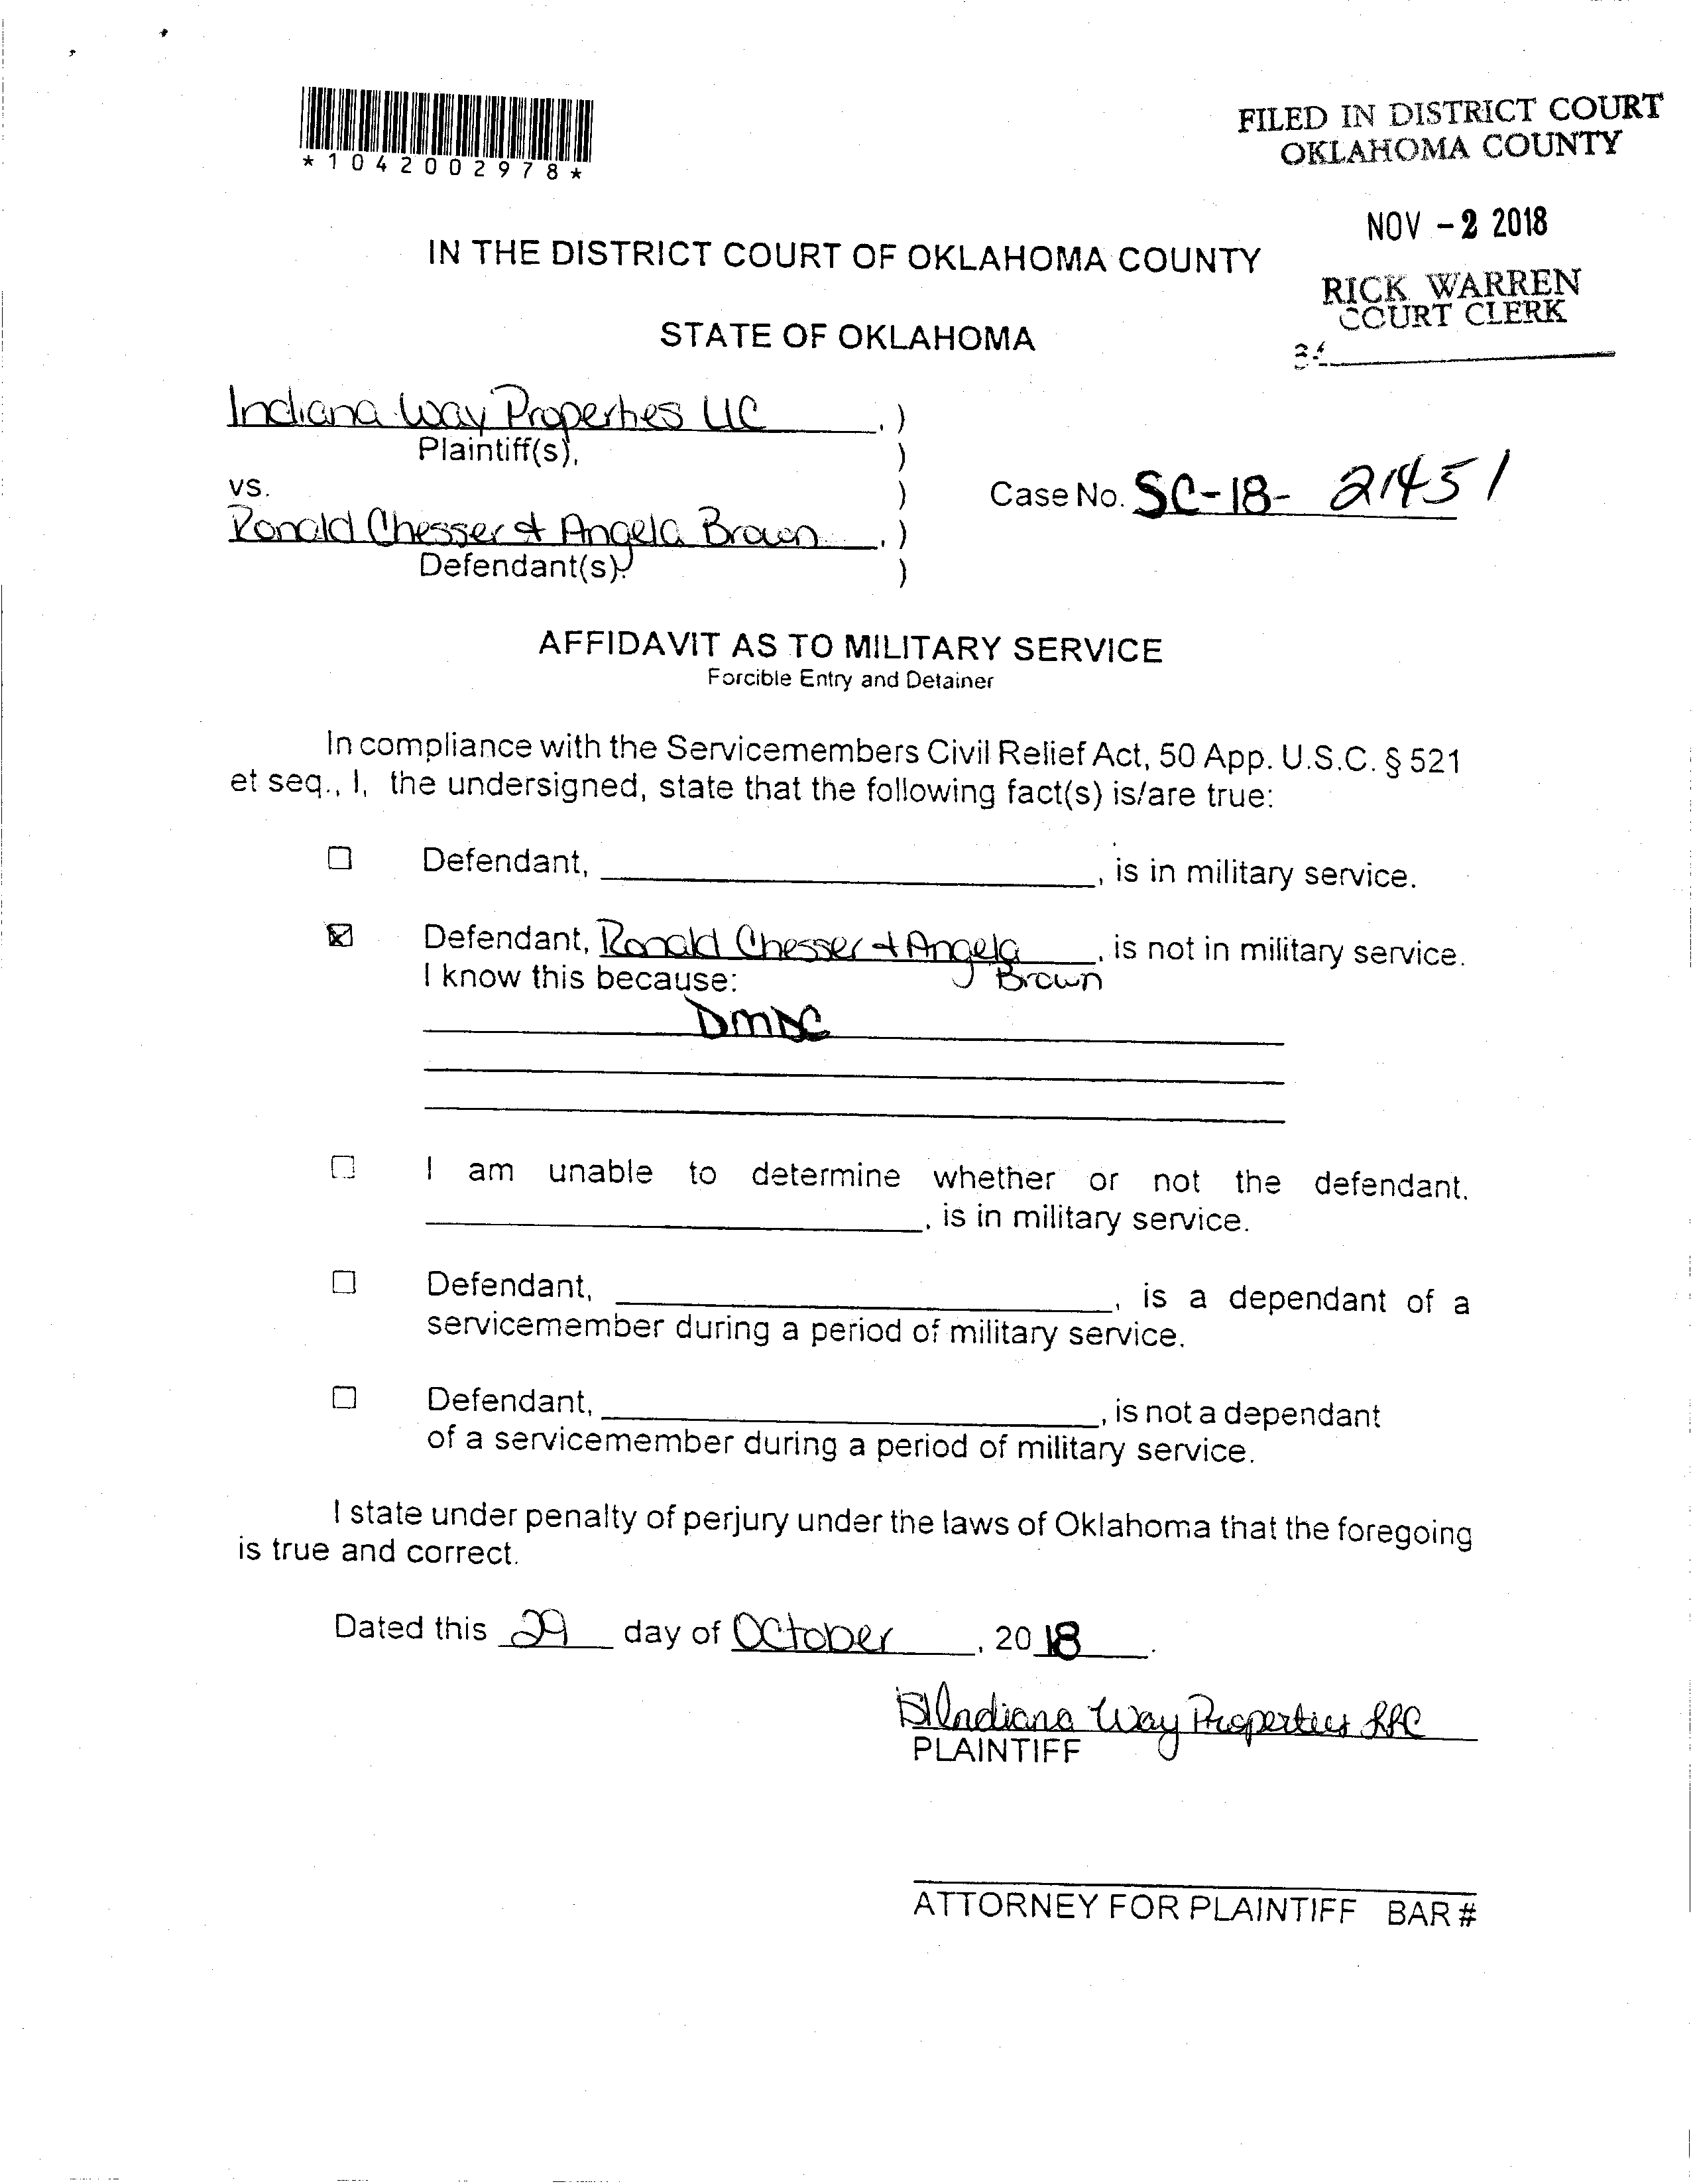 *1042002978*
FILED IN DISTRICT COURT
OKLAHOMA COUNTY
NOV - 2 2018
RICK WARREN
COURT CLERK
34
IN THE DISTRICT COURT OF OKLAHOMA COUNTY
STATE OF OKLAHOMA
Indiana Way Properties LLC , )
Plaintiff(s), )
vs. )
Case No. SC-18- 21451
Ronald Chesser & Angela Brown , )
Defendant(s). )
AFFIDAVIT AS TO MILITARY SERVICE
Forcible Entry and Detainer
In compliance with the Servicemembers Civil Relief Act, 50 App. U.S.C. § 521
et seq., I, the undersigned, state that the following fact(s) is/are true:
☐ Defendant, ____, is in military service.
☒ Defendant, Ronald Chesser & Angela , is not in military service.
I know this because: Brown
DMDC
☐ I am unable to determine whether or not the defendant,
____, is in military service.
☐ Defendant, ____, is a dependant of a
servicemember during a period of military service.
☐ Defendant, ____, is not a dependant
of a servicemember during a period of military service.
I state under penalty of perjury under the laws of Oklahoma that the foregoing
is true and correct.
Dated this 29 day of October , 20 18 .
Indiana Way Properties LLC
PLAINTIFF
ATTORNEY FOR PLAINTIFF BAR #